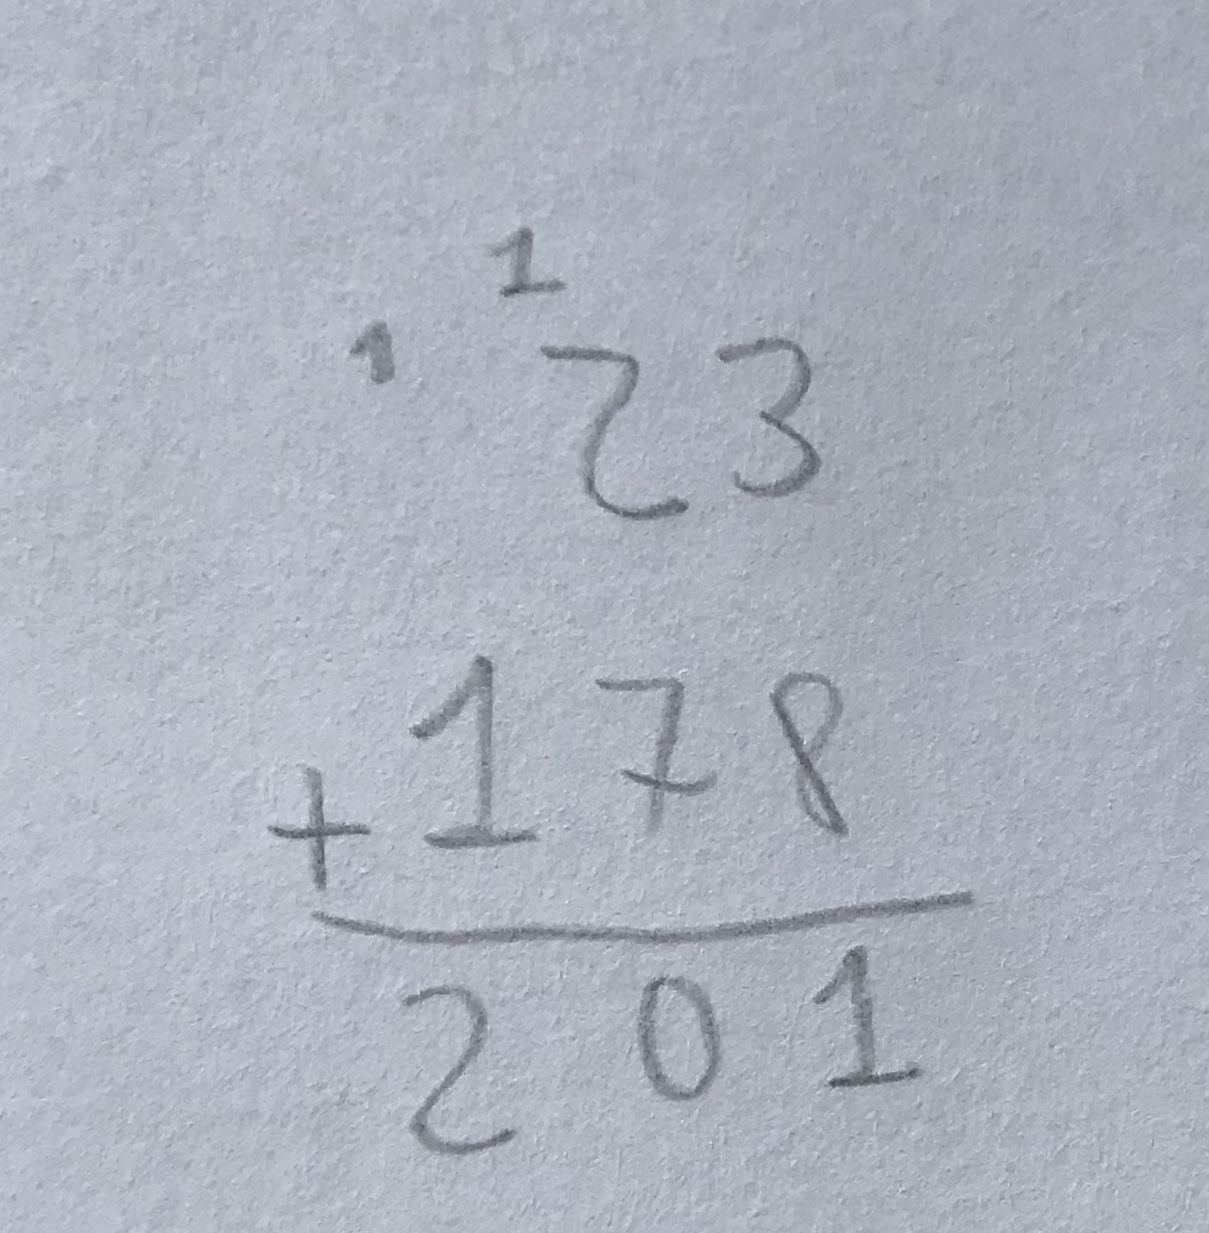 1
1 23
+178
201